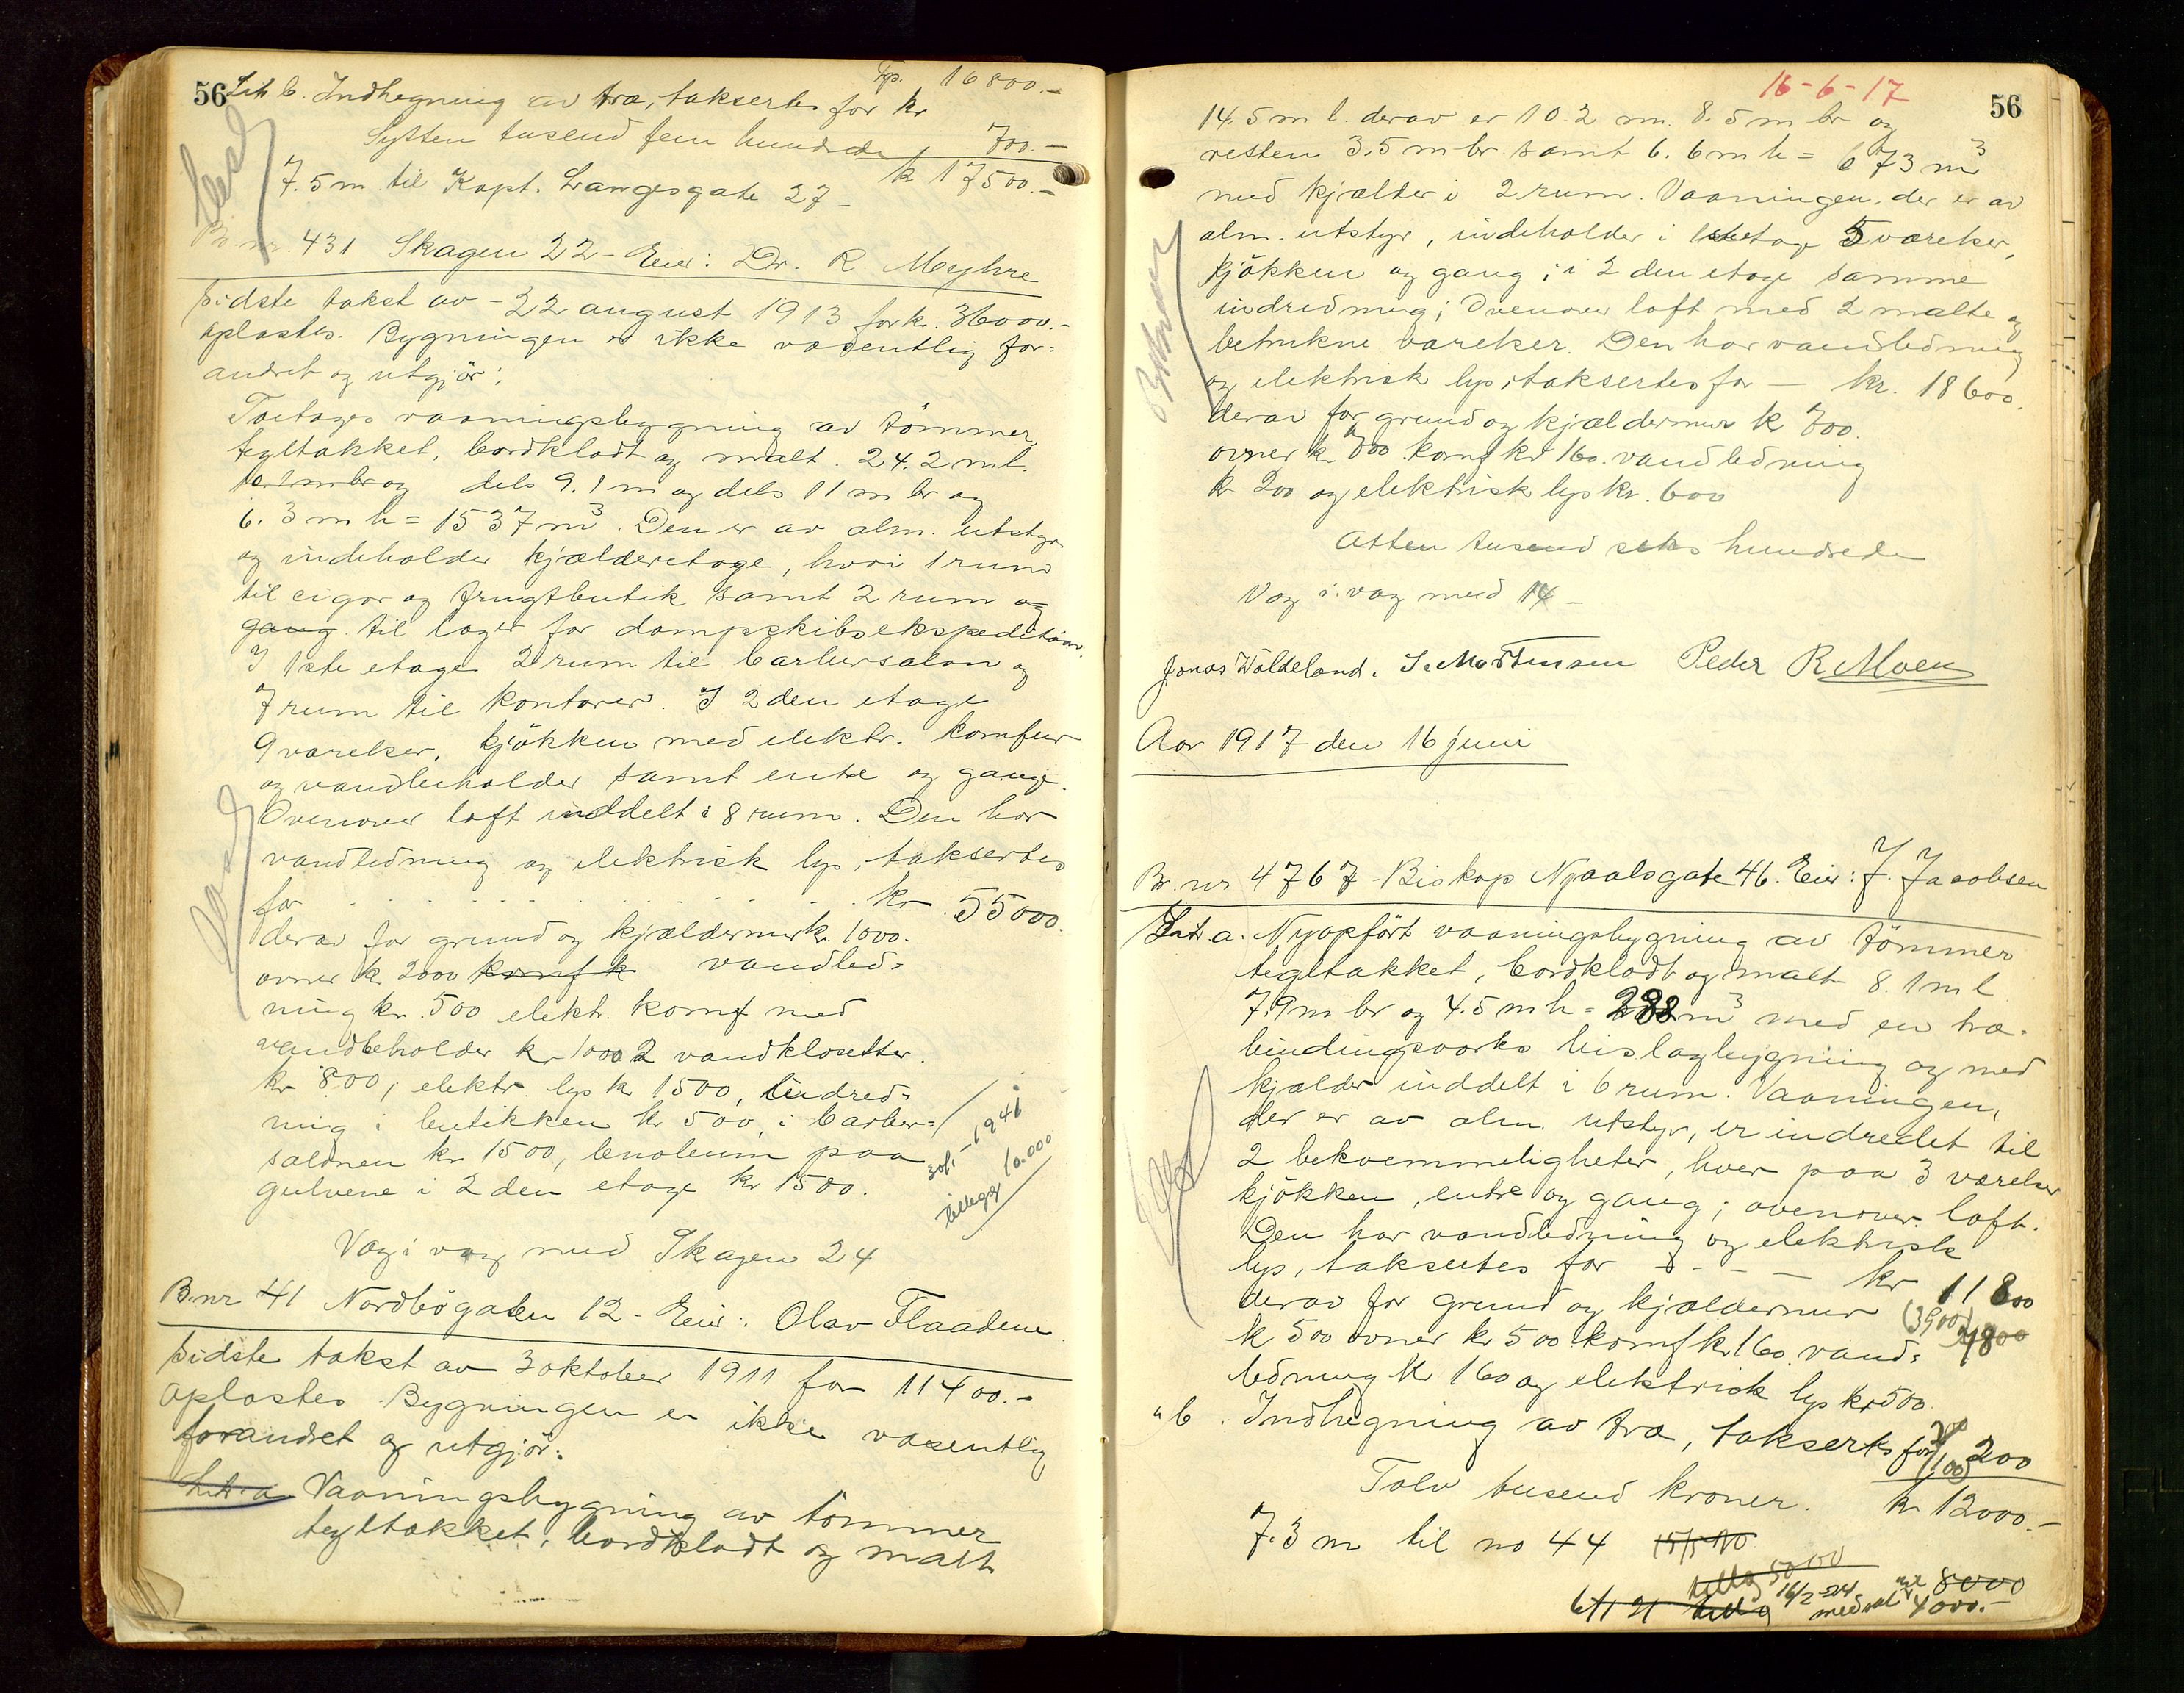 56
Trp. 16800.-
Litr b. Indhegning av træ, taksertes for kr 700.-
Sytten tusend fem hundrede kr 17500.-
7.5 m til Kapt. Langesgate 27-
Br. nr. 431 Skagen 22 - Eier: Dr. R Myhre
Sidste takst av - 22 august 1913 for k. 36000.-
oplæstes. Bygningen er ikke væsentlig for=
andret og utgjör:
Toetages vaaningsbygning av tömmer,
tegltakket, bordklædt og malt. 24.2 m l.
10.1 m br og dels 9.1 m og dels 11 m br og
6.3 m h = 1537 m³. Den er av alm. utstyr
og indeholder kjælderetage, hvori 1 rum
til cigar og frugtbutik samt 2 rum og
gang til lager for dampskibsekspedition.
I 1ste etage 2 rum til barbersalon og
7 rum til kontorer. I 2den etage
9 værelser, kjökken med elektr. komfur
og vandbeholder samt entre og gange.
Ovenover loft inddelt i 8 rum. Den har
vandledning og elektrisk lys, taksertes
for . . . . . . . . . . kr 55000.
derav for grund og kjældermur k. 1000.
ovner k 2000 komf k vandled=
ning kr. 500 elektr. komf med
vandbeholder kr 1000 2 vandklosetter
kr 800, elektr. lys k 1500, indred=
ning i butikken kr 500, i barber=
salonen kr 1500, lenoleum paa
gulvene i 2den etage kr 1500.
1941
tillegg 10.000
Væg i væg med Skagen 24
B.nr 41 Nordbögaten 12 - Eier: Olav Flaadene
Sidste takst av 3 oktober 1911 for 11400.-
oplæstes. Bygningen er ikke væsentlig
forandret og utgjör:
Litr. a Vaaningsbygning av tömmer
tegltakket, bordklædt og malt
16-6-17
56
14.5 m l. derav er 10.2 m. 8.5 m br og
resten 3.5 m br samt 6.6 m h = 673 m³
med kjælder i 2 rum. Vaaningen, der er av
alm. utstyr, indeholder i 1ste etage 5 værelser,
kjökken og gang; i 2den etage samme
indredning; Ovenover loft med 2 malte og
betrukne værelser. Den har vandledning
og elektrisk lys, taksertes for - kr. 18600.
derav for grund og kjældermur k 700.
ovner k 700 komf kr 160. vandledning
kr 200 og elektrisk lys kr. 600
Atten tusend seks hundrede
Væg i væg med 14 -
Jonas Woldeland. S. Mortensen Peder R Moen
Aar 1917 den 16 juni
Br. nr 4767 - Biskop Njaalsgate 46. Eier: J. Jacobsen
Litr. a. Nyopfört vaaningsbygning av tömmer
tegltakket, bordklædt og malt 8.1 m l
7.9 m br og 4.5 m h = 288 m³ med en træ-
bindingsværks bislagbygning og med
kjælder inddelt i 6 rum. Vaaningen,
der er av alm. utstyr, er indredet til
2 bekvemmeligheter, hver paa 3 værelser
kjökken, entre og gang; ovenover loft.
Den har vandledning og elektrisk
lys, taksertes for - - - - kr 11800
derav for grund og kjældermur (3900)
k 500 ovner kr 500 komf kr 160. vand= 7800
ledning kr 160 og elektrisk lys kr 500
" b. Indhegning av træ, taksertes for 200
(100)
Tolv tusend kroner. kr 12000.-
7.3 m til no 44
tillæg 5000
6/1 21 tillæg 16/2-24 8000
4000.-